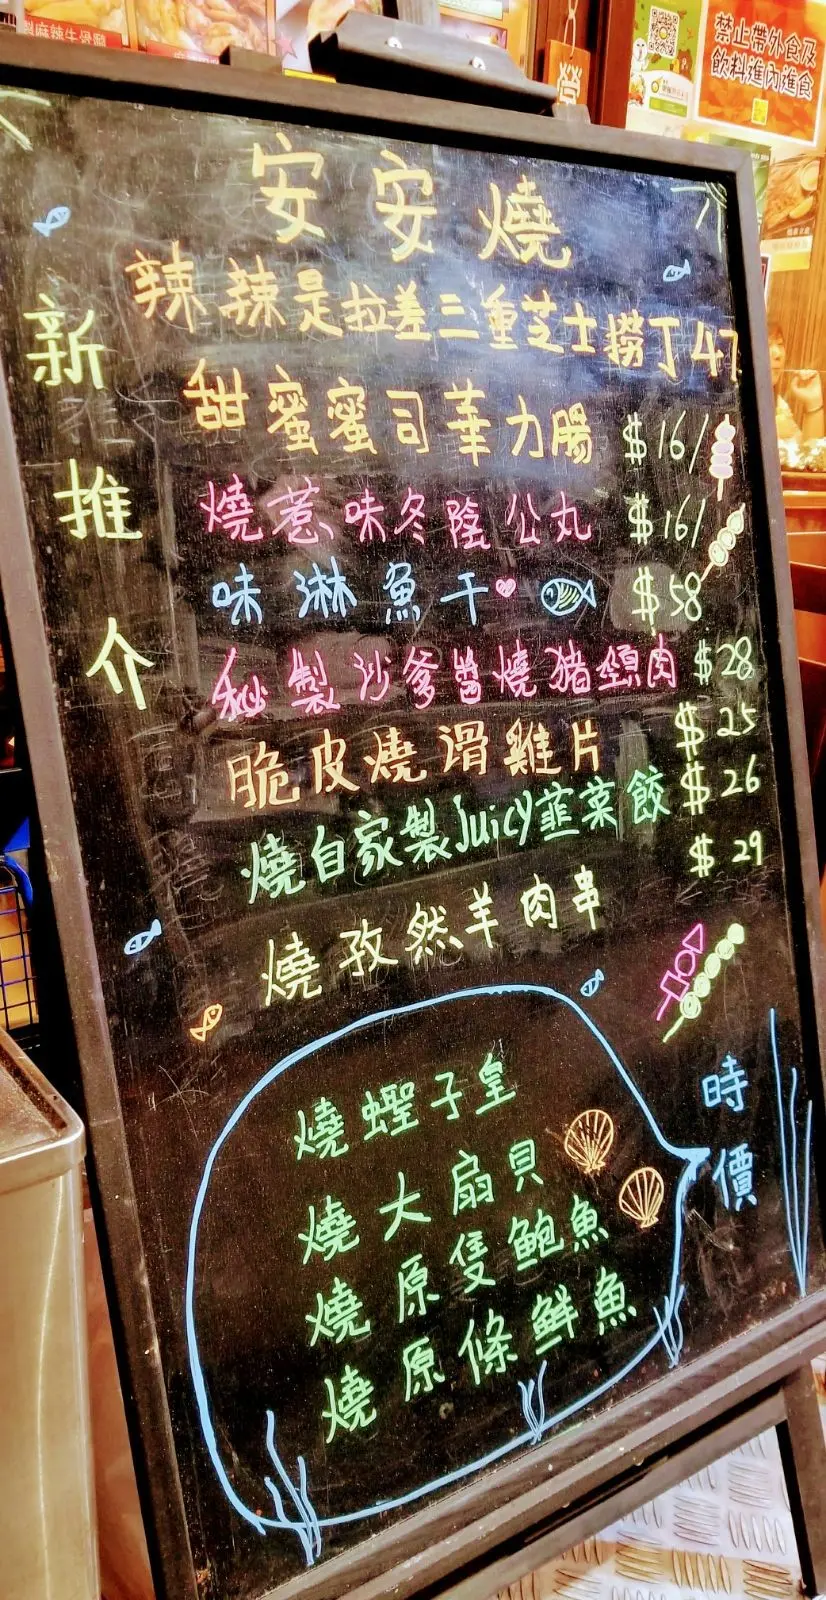 禁止帶外食及
飲料進內進食
安安燒
新推介
辣辣是拉差三重芝士撈丁47
甜蜜蜜司華力腸 $16/
燒惹味冬陰公丸 $16/
味淋魚干 $58
秘製沙爹醬燒豬頸肉 $28
脆皮燒滑雞片 $25
燒自家製Juicy韮菜餃 $26
燒孜然羊肉串 $29
燒蟶子皇
燒大扇貝
燒原隻鮑魚
燒原條鮮魚
時價